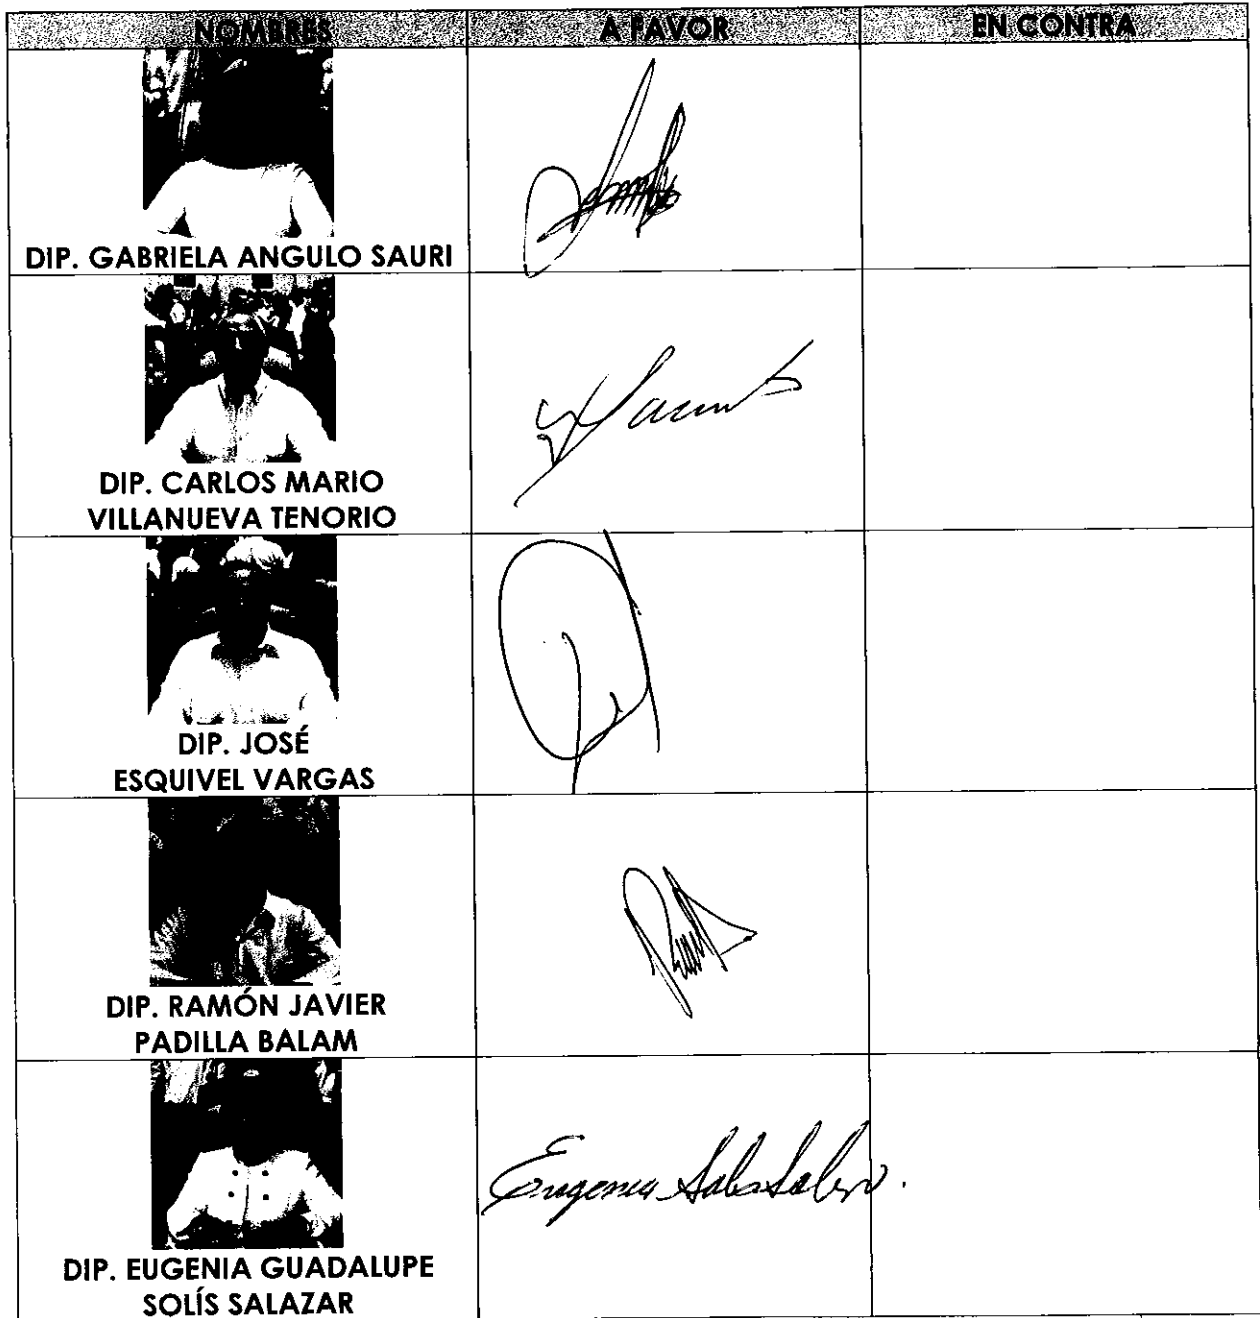 NOMBRES A FAVOR EN CONTRA
DIP. GABRIELA ANGULO SAURI
DIP. CARLOS MARIO
VILLANUEVA TENORIO
DIP. JOSÉ
ESQUIVEL VARGAS
DIP. RAMÓN JAVIER
PADILLA BALAM
Eugenia
DIP. EUGENIA GUADALUPE
SOLÍS SALAZAR